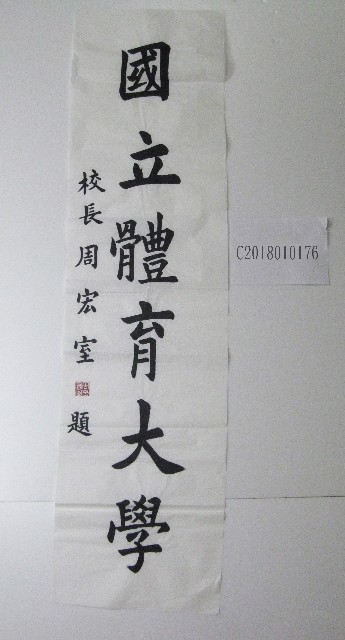 國立體育大學
校長周宏室題
C2018010176